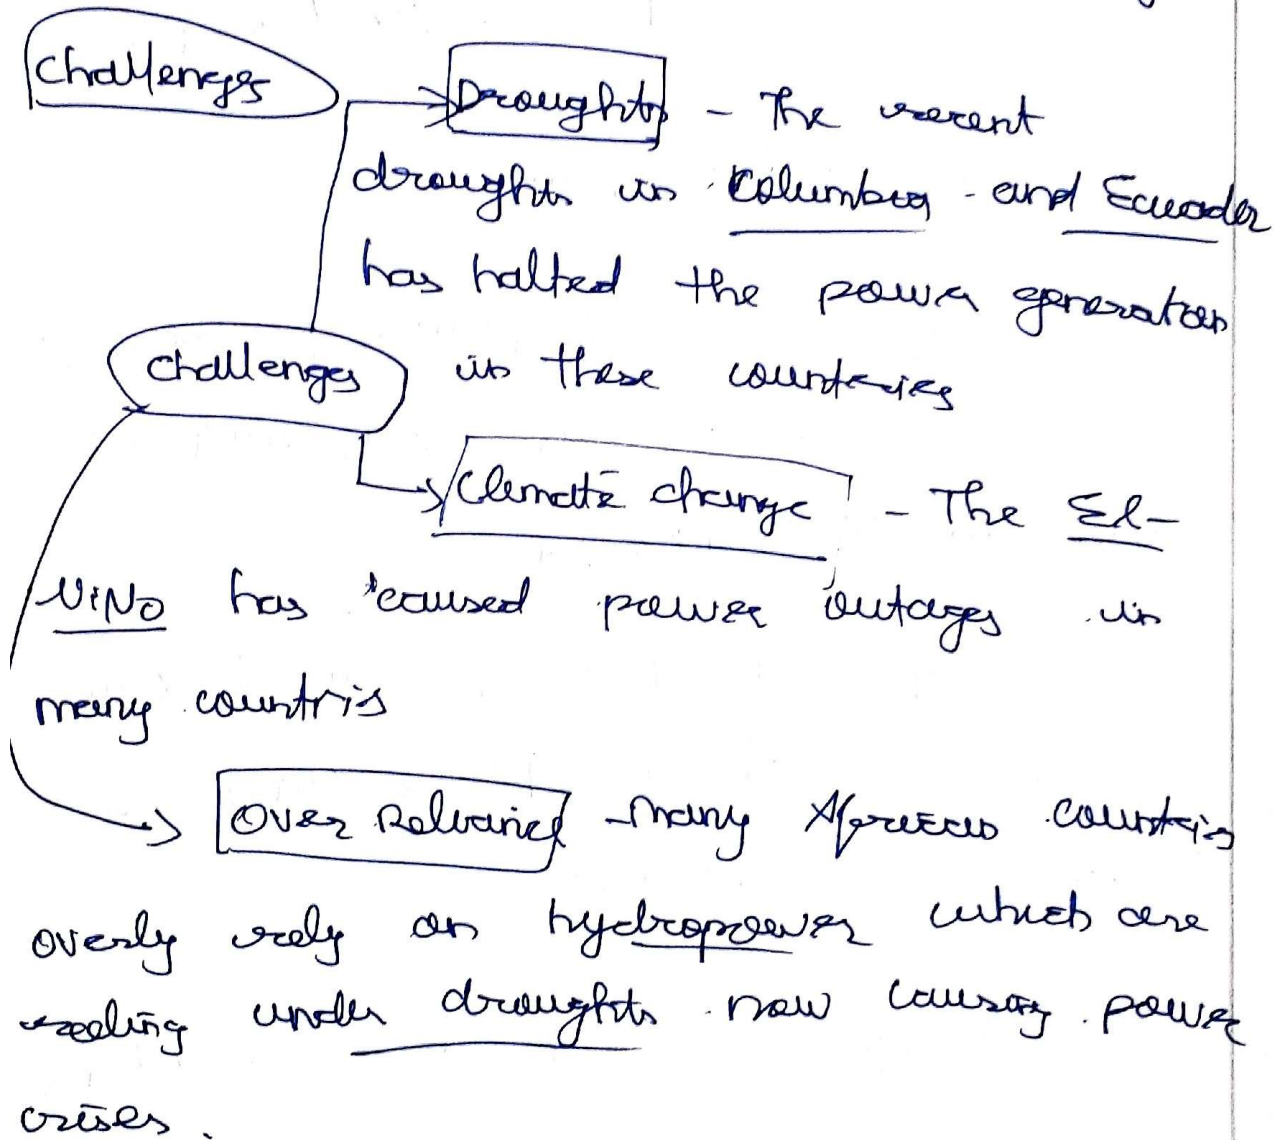 Challenges
Droughts - The recent
droughts in Columbia and Ecuador
has halted the power generation
Challenges in these countries
Climate change - The El-
NiNo has caused power outages in
many countris
Over Reliance - many African countries
overly rely on hydropower which are
reeling under droughts now causing power
crises.